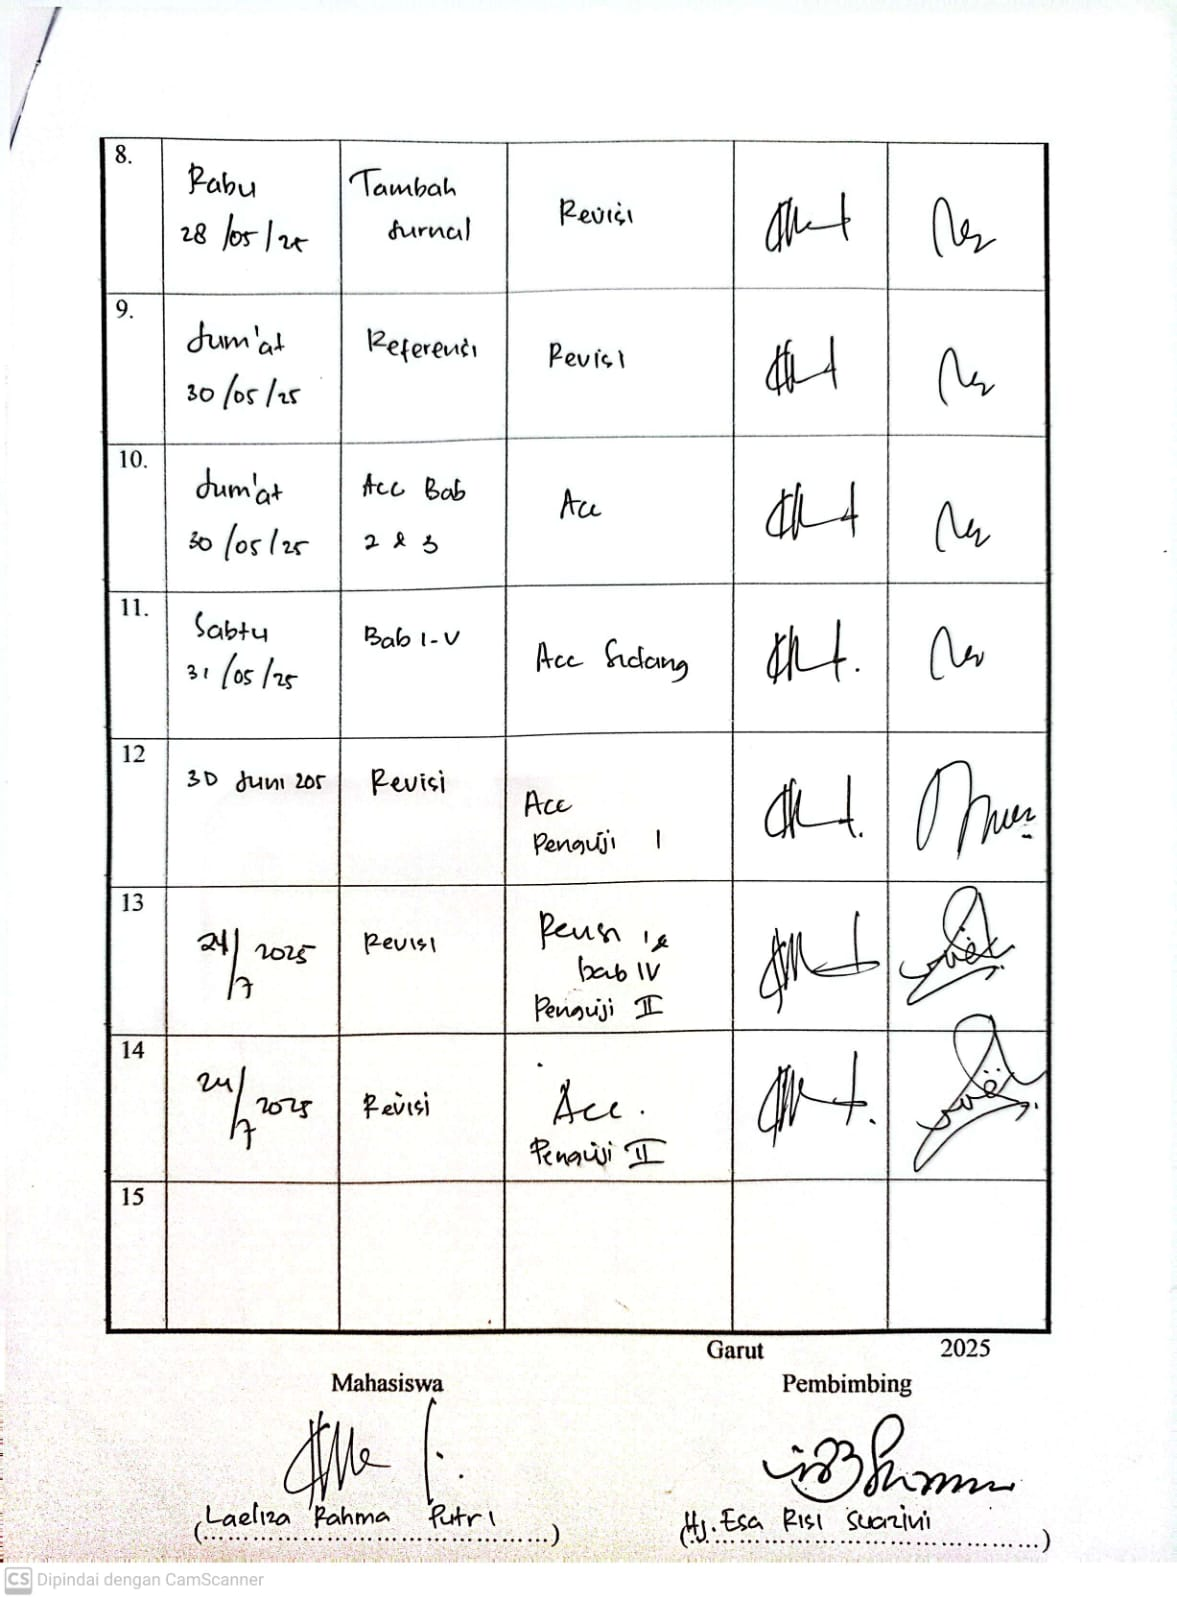 8.
Rabu
28/05/25
Tambah
Jurnal
Revisi
9.
Jum'at
30/05/25
Referensi
Revisi
10.
Jum'at
30/05/25
Acc Bab
2 & 3
Acc
11.
Sabtu
31/05/25
Bab I-V
Acc Sidang
12
30 Juni 205
Revisi
Acc
Penguji I
13
24/7 2025
Revisi
bab IV
Penguji II
14
24/7 2025
Revisi
Acc.
Penguji II
15
Garut 2025
Mahasiswa
Pembimbing
Laeliza Rahma Putri
(..........................................)
Hj. Esa Risi Suazini
(..........................................)
CS Dipindai dengan CamScanner